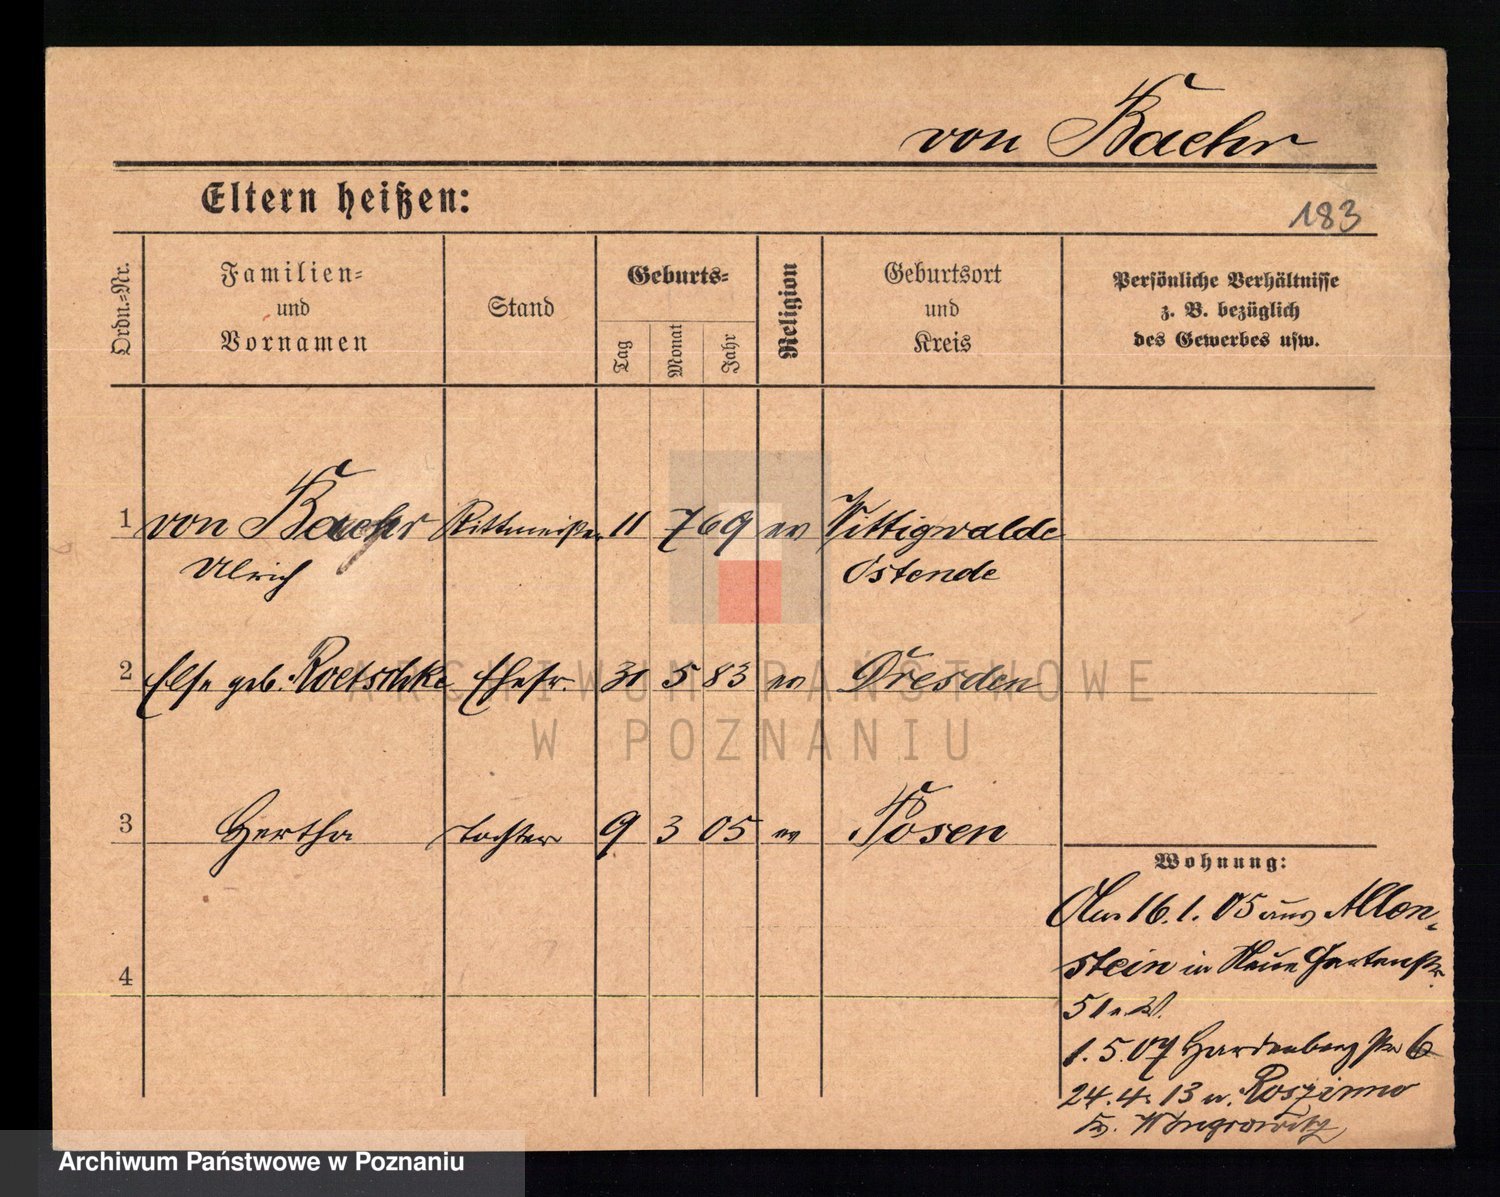 von Baehr
Eltern heißen:
183
Ordn.-Nr.
Familien-
und
Vornamen
Stand
Geburts-
Tag
Monat
Jahr
Religion
Geburtsort
und
Kreis
Persönliche Verhältnisse
z. B. bezüglich
des Gewerbes usw.
1 von Baehr Rittmeister 11 7 69 ev Wittigwalde
Ulrich Ostende
2 Else geb. Roetschke Ehefr. 31 5 83 ev Dresden
3 Hertha Tochter 9 3 05 ev Posen
Wohnung:
16.1.05 aus Allen-
stein in Neue Gartenstr.
51
4
1.5.07 Hardenbergstr 6
24.4.13 n. Roszinno
Kr. Wongrowitz
ARCHIWUM PAŃSTWOWE
W POZNANIU
Archiwum Państwowe w Poznaniu